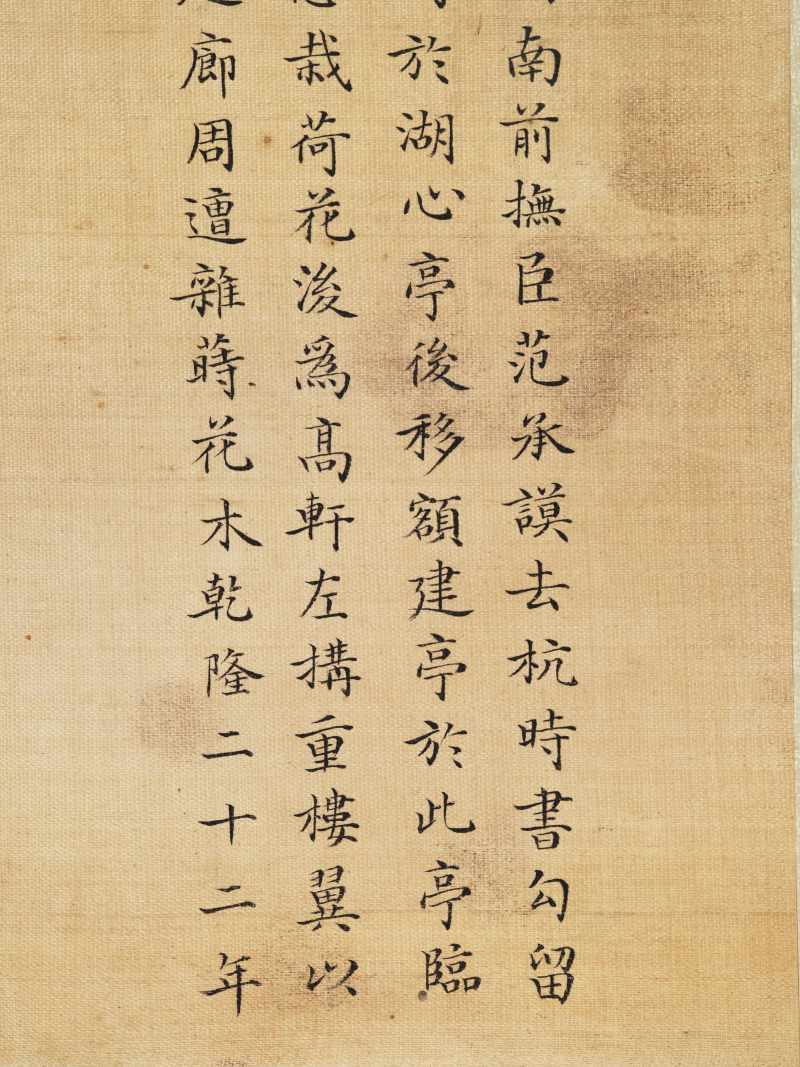 南前撫臣范承謨去杭時書勾留
於湖心亭後移額建亭於此亭臨
栽荷花後爲高軒左搆重樓翼以
廊周遭雜蒔花木乾隆二十二年